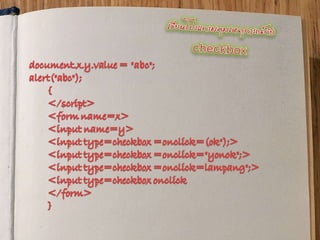 checkbox
document.x.y.value = "abc";
alert("abc");
{
</script>
<form name=x>
<input name=y>
<input type=checkbox =onclick=(ok");>
<input type=checkbox =onclick="yonok";>
<input type=checkbox =onclick=lampang";>
<input type=checkbox onclick
</form>
}